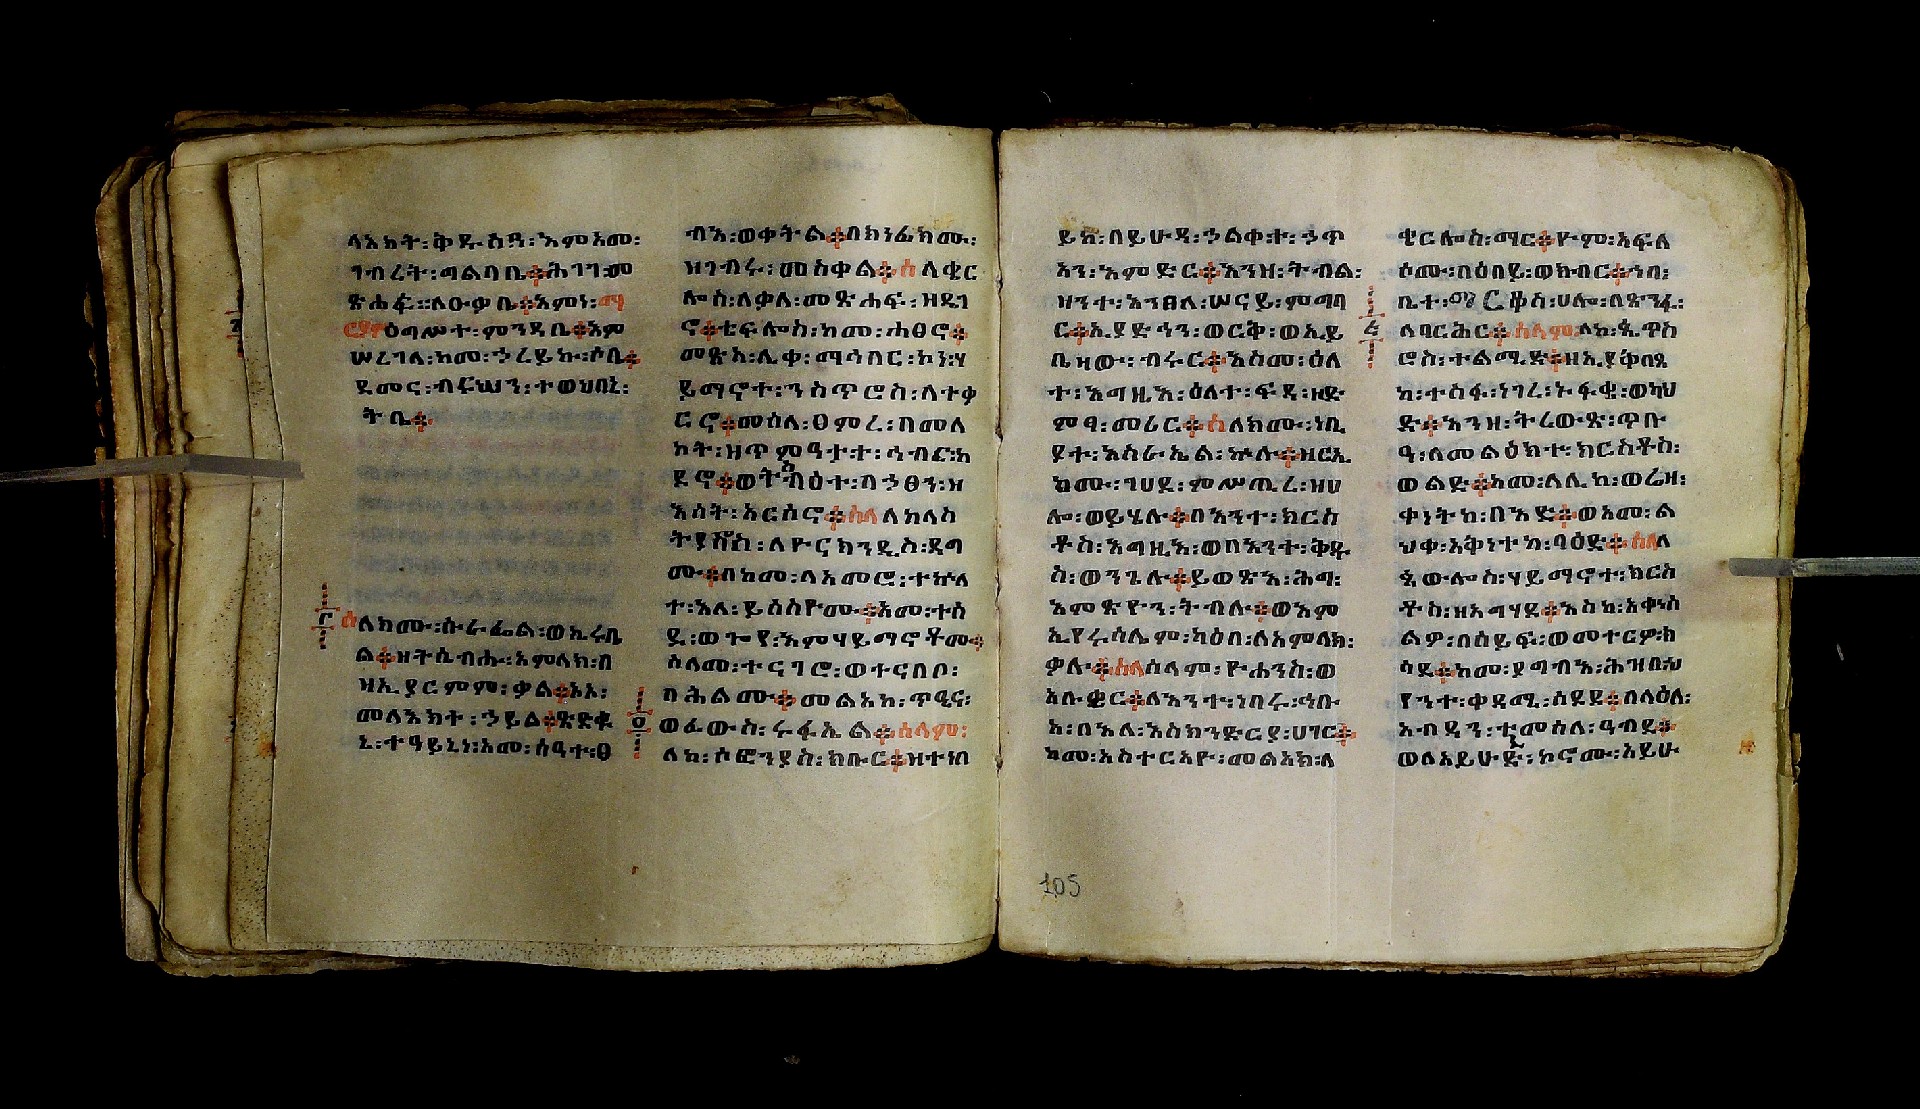 ላእክት፡ቅዱሳን፡እምአመ፡
ገብረት፡ጣልባቤ፨ሕገገ፡መ
ጽሐፍ፡፡ለዑቃቤ፨እምነ፡ማ
ርያም፡ዕጣሥተ፡ምንዳቤ፨እም
ሠረገላ፡ከመ፡ኃረይኩ፡ሶቤ፨
ደመና፡ብሩህ
ትቤ፨
ሰላክሙ፡ሱራፌል፡ወኪሩቤ
ል፨ዘትሴብሑ፡አምላክ፡በ
ዝኢያርምም፡ቃል፨አእ፡
መላእክተ፡ኃይል፨ጽድቁ
ኒ፡ተዓይኒነ፡አመ፡ሰዓተ፡ፀ
ብእ፡ወቀትል፨በክነፊክሙ፡
ዝገብሩ፡መስቀል፨ሰላቂር
ሎስ፡ለቃለ፡መጽሐፍ፡ዘዴገ
ኖ፨ቴፍሎስ፡ከመ፡ሐፀኖ፨
መጽአ፡ሊቀ፡ማኅበር፡ኮነ፡ሃ
ይማኖተ፡ንስጥሮስ፡ለተቃ
ርኖ፨መሰለ፡ፀምረ፡በመለ
ኮት፡ዘጥምዓታተ፡ኅብሯ፡አ
ደኖ፨ወትእብዕተ፡በኃፀን፡ዘ
እሳት፡አርሰኖ፨ሰላለክላስ
ትያኖስ፡ለዮርክንዲስ፡ዳግ
ሙ፨በከመ፡ለአመሮ፡ተኵላ
ተ፡አለ፡ይሰስዮሙ፨አመ፡ተስ
ደ፡ወጐየ፡እምሃይማኖቶሙ፨
ሰላመ፡ተናገሮ፡ወተናበቦ፡
በሕልሙ፨መልአከ፡ጥዒና፡
ወፈውስ፡ሩፋኤል፨ሰላም፡
ለከ፡ሶፎንያስ፡ክቡር፨ዘተነበ
ይከ፡በይሁዳ፡ኃልቀተ፡ኃጥ
አን፡እምድር፨እንዘ፡ትብል፡
ዝንተ፡አንፀለ፡ሠናይ፡ምግባ
ር፨ኢያድኅን፡ወርቅ፡ወኢይ
ቤዝው፡ብሩር፨እስመ፡ዕለ
ተ፡እግዚእ፡ዕለተ፡ፍዳ፡ዘድ
ምፃ፡መሪር፨ሰላክሙ፡ነቢ
ያተ፡እስራኤል፡ኵሉ፨ዘርኢ
ክሙ፡ገሀደ፡ምሥጢረ፡ዝህ
ሎ፡ወይሄሉ፨በእንተ፡ክርስ
ቶስ፡እግዚእ፡ወበእንተ፡ቅዱ
ስ፡ወንጌሉ፨ይወጽእ፡ሕግ፡
እምጽዮን፡ትብሉ፨ወእም
ኢየሩሳሌም፡ካዕበ፡ለአምላክ፡
ቃሉ፨ሰላሰላም፡ዮሐንስ፡ወ
አሉቂር፨ለእንተ፡ነበሩ፡ኅቡ
አ፡በአለ፡እስክንድርያ፡ሀገር፨
ከመ፡አስተርአዮ፡መልአክ፡ለ
ቄርሎስ፡ማር፨ዮም፡አፍለ
ሶሙ፡በዕበይ፡ወክብር፨ኀበ፡
ቤተ፡ማርቆስ፡ሀሎ፡በጽንፈ፡
ለባርሕር፨ሰላም፡ለከ፡ጴጥሮ
ሮስ፡ተልሚድ፨ዘኢያቅበጸ
ከ፡ተስፋ፡ነገረ፡ኑፋቄ፡ወክህ
ድ፨እንዘ፡ትረውጽ፡ጥቡ
ዓ፡ለመልዕክተ፡ክርስቶስ፡
ወልድ፨አመ፡ለሊከ፡ወሬዛ፡
ቀነትከ፡በእድ፨ወአመ፡ል
ህቀ፡አቅነተከ፡ባዕድ፨ሰላለ
ጳውሎስ፡ሃይማኖተ፡ክርስ
ቶስ፡ዘአግሃደ፨እስከ፡አቀነ
ልዎ፡በሰይፍ፡ወመተርዎ፡ክ
ሳደ፨አመ፡ያግብእ፡ሕዝበህ
የንተ፡ቀዳሚ፡ሰደደ፨በላዕለ፡
አብዳን፡ተመሰለ፡ዓብደ፨
ወለአይሁድ፡ኮኖሙ፡አይሁ
105